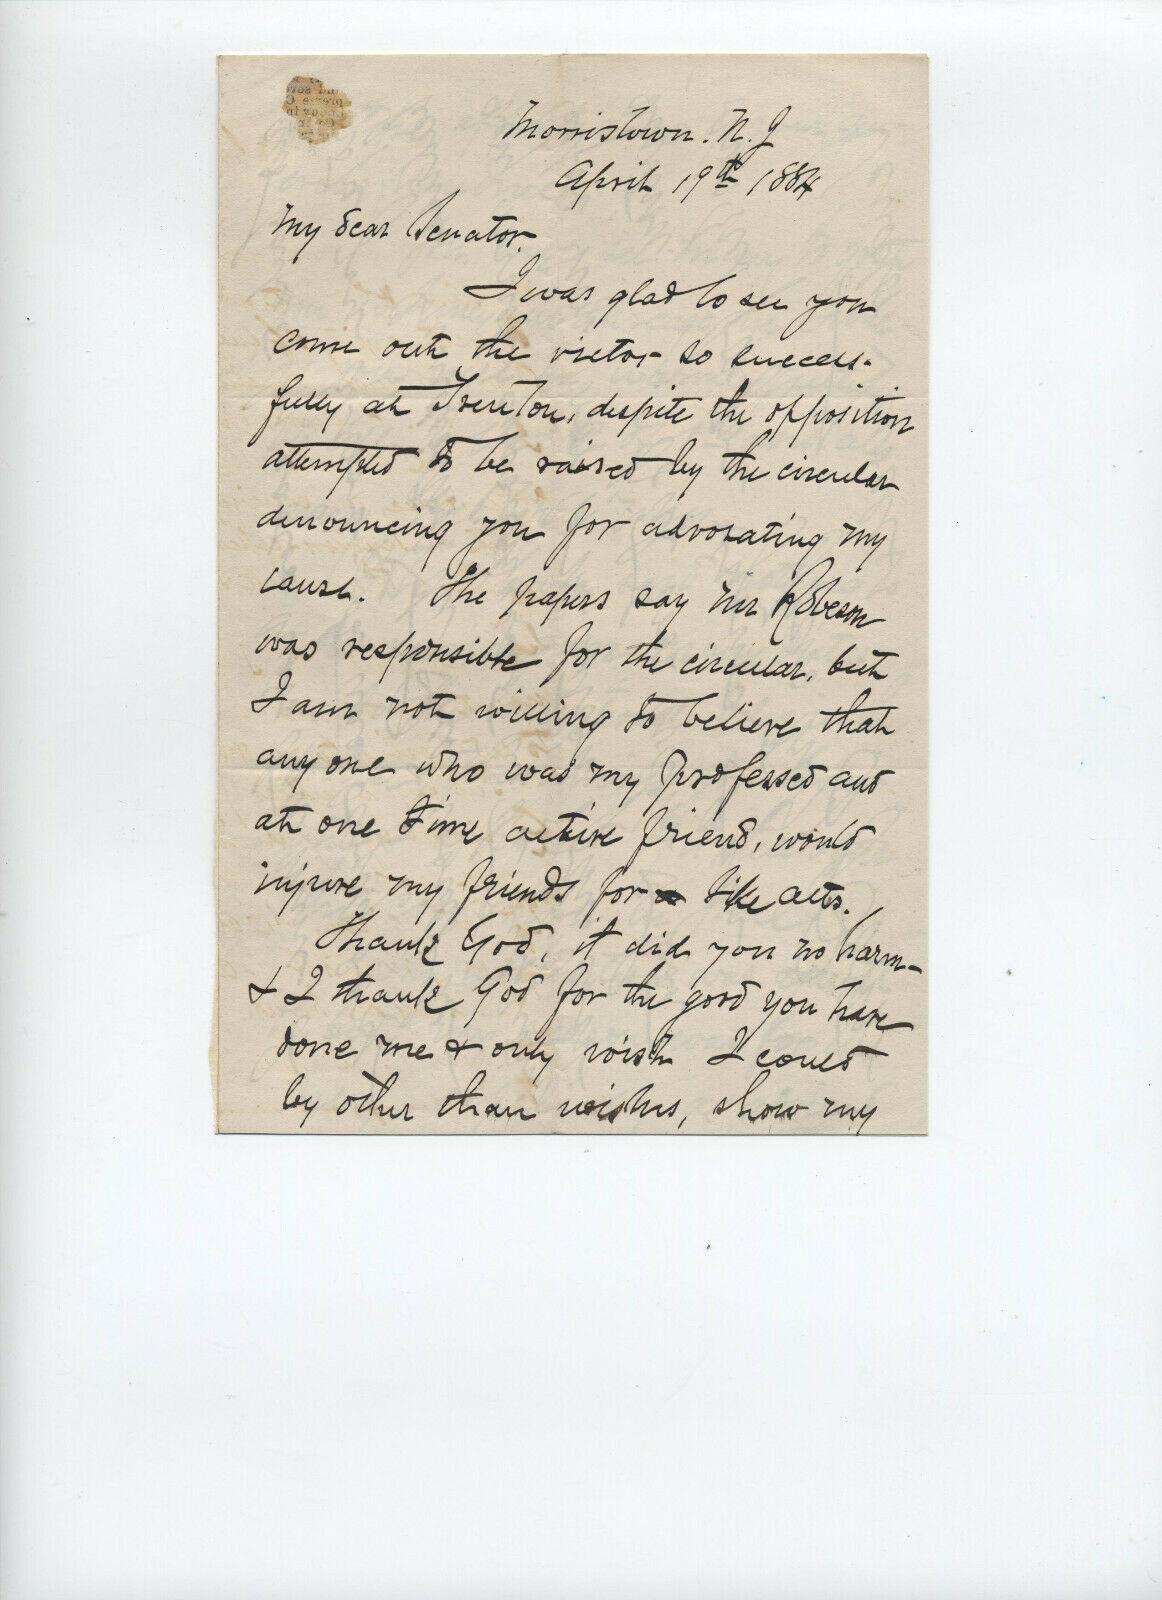 Morristown. N. J
April 19th 1884
My dear Senator.
I was glad to see you
come out the victor so success-
fully at Trenton, despite the opposition
attempted to be raised by the circular
denouncing you for advocating my
cause. The papers say Mr Robeson
was responsible for the circular, but
I am not willing to believe that
any one who was my professed and
at one time active friend, would
injure my friends for like acts.
Thank God, it did you no harm-
& I thank God for the good you have
done me & only wish I could
by other than wishes, show my